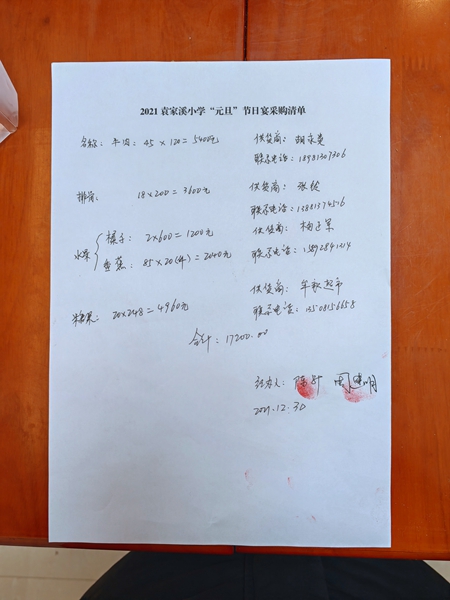 2021袁家溪小学“元旦”节日宴采购清单
名称：牛肉：45×120=5400元 供货商：胡永贵
联系电话：18981307306
排骨 18×200=3600元 供货商：张
联系电话：13881374576
水果 橘子：2×600=1200元 供货商：
香蕉：85×20(件)=2040元 联系电话：
供货商：年家超市
糖果：20×248=4960元 联系电话：13508156658
合计：17200.00
经办人：陈 明
2021.12.30